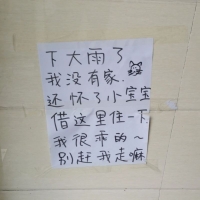 下大雨了
我没有家.
还怀了小宝宝
借这里住一下
我很乖的~
别赶我走嘛